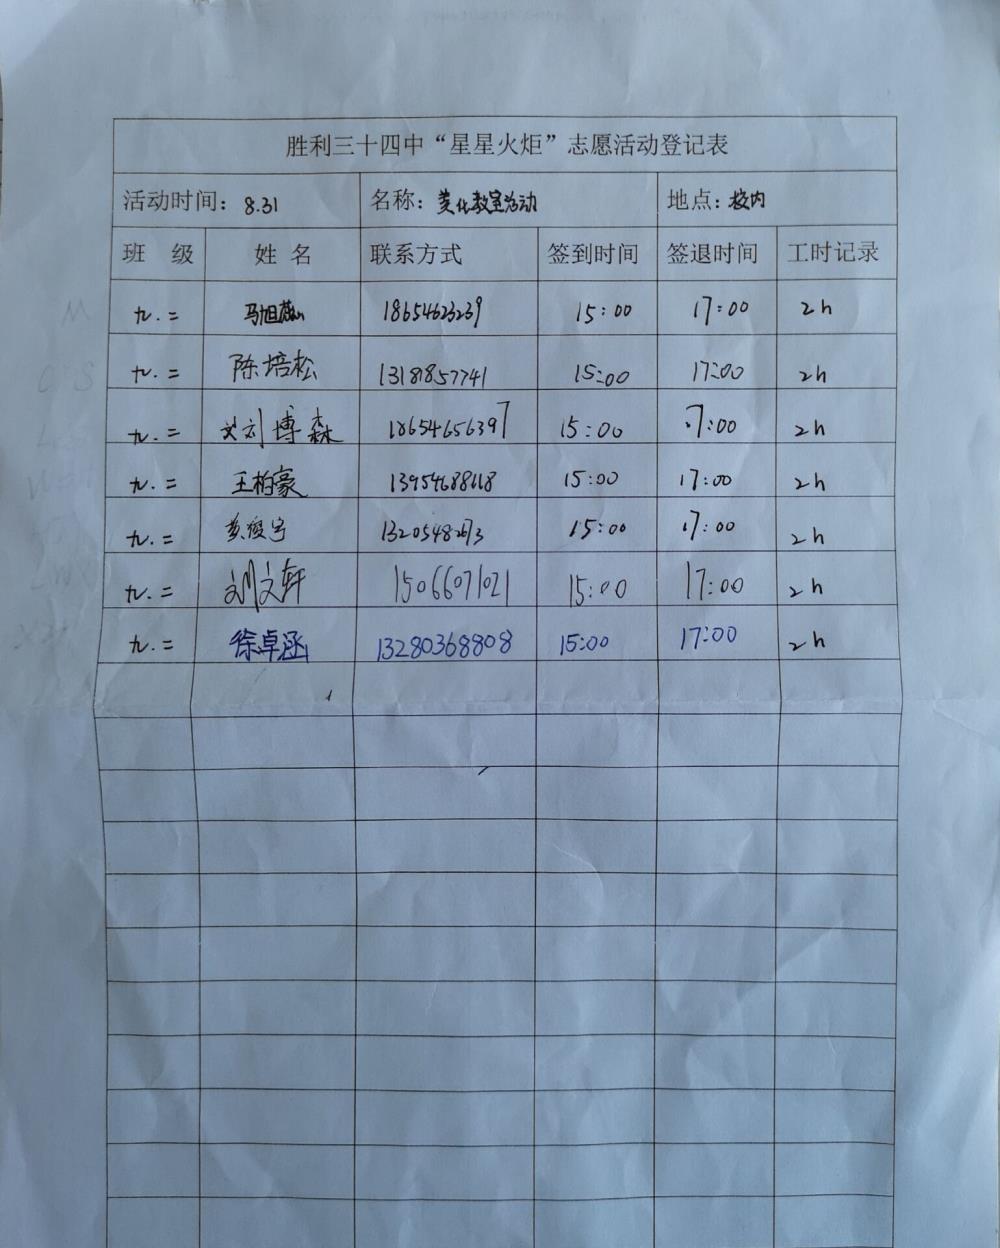 胜利三十四中“星星火炬”志愿活动登记表
活动时间：8.31 名称：美化教室活动 地点：校内
班 级 姓 名 联系方式 签到时间 签退时间 工时记录
九.二 马旭 18654623239 15:00 17:00 2h
九.二 陈培松 13181857741 15:00 17:00 2h
九.二 刘博森 18654656397 15:00 17:00 2h
九.二 王柏豪 13954688118 15:00 17:00 2h
九.二 黄俊宇 15:00 17:00 2h
九.二 刘文轩 15066071021 15:00 17:00 2h
九.二 徐卓涵 13280368808 15:00 17:00 2h